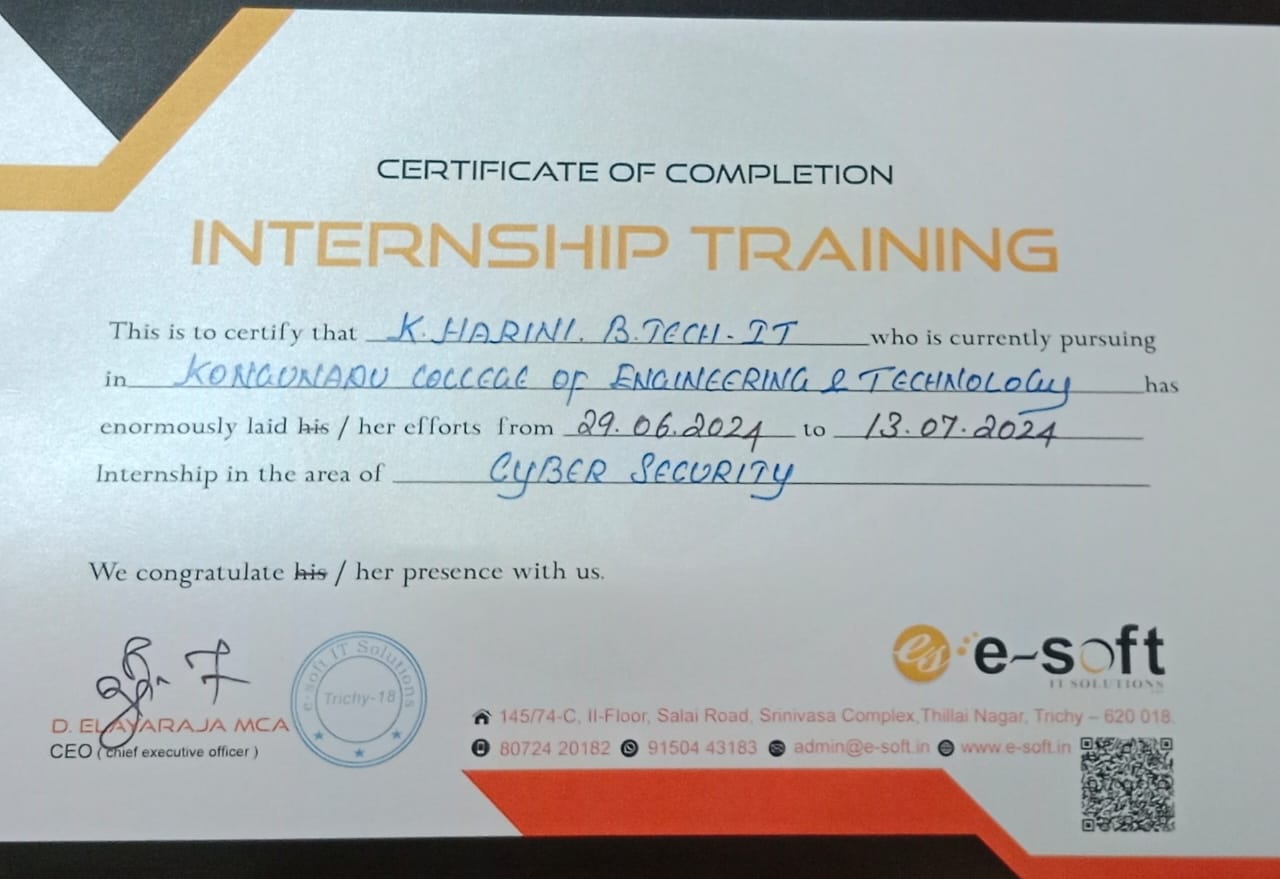 CERTIFICATE OF COMPLETION
INTERNSHIP TRAINING
This is to certify that K. HARINI. B.TECH - IT who is currently pursuing
in KONGUNADU COLLEGE OF ENGINEERING & TECHNOLOGY has
enormously laid his / her efforts from 29.06.2024 to 13.07.2024
Internship in the area of CYBER SECURITY
We congratulate his / her presence with us.
e-soft IT Solutions
Trichy-18
D. ELAYARAJA MCA
CEO ( chief executive officer )
es e-soft
IT SOLUTIONS
145/74-C, II-Floor, Salai Road, Srinivasa Complex,Thillai Nagar, Trichy – 620 018.
80724 20182 91504 43183 admin@e-soft.in www.e-soft.in